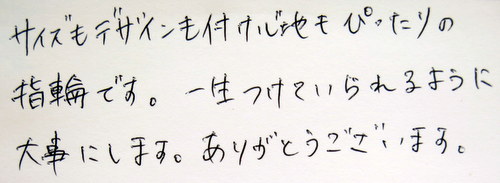 サイズもデザインも付け心地もぴったりの
指輪です。一生つけていられるように
大事にします。ありがとうございます。